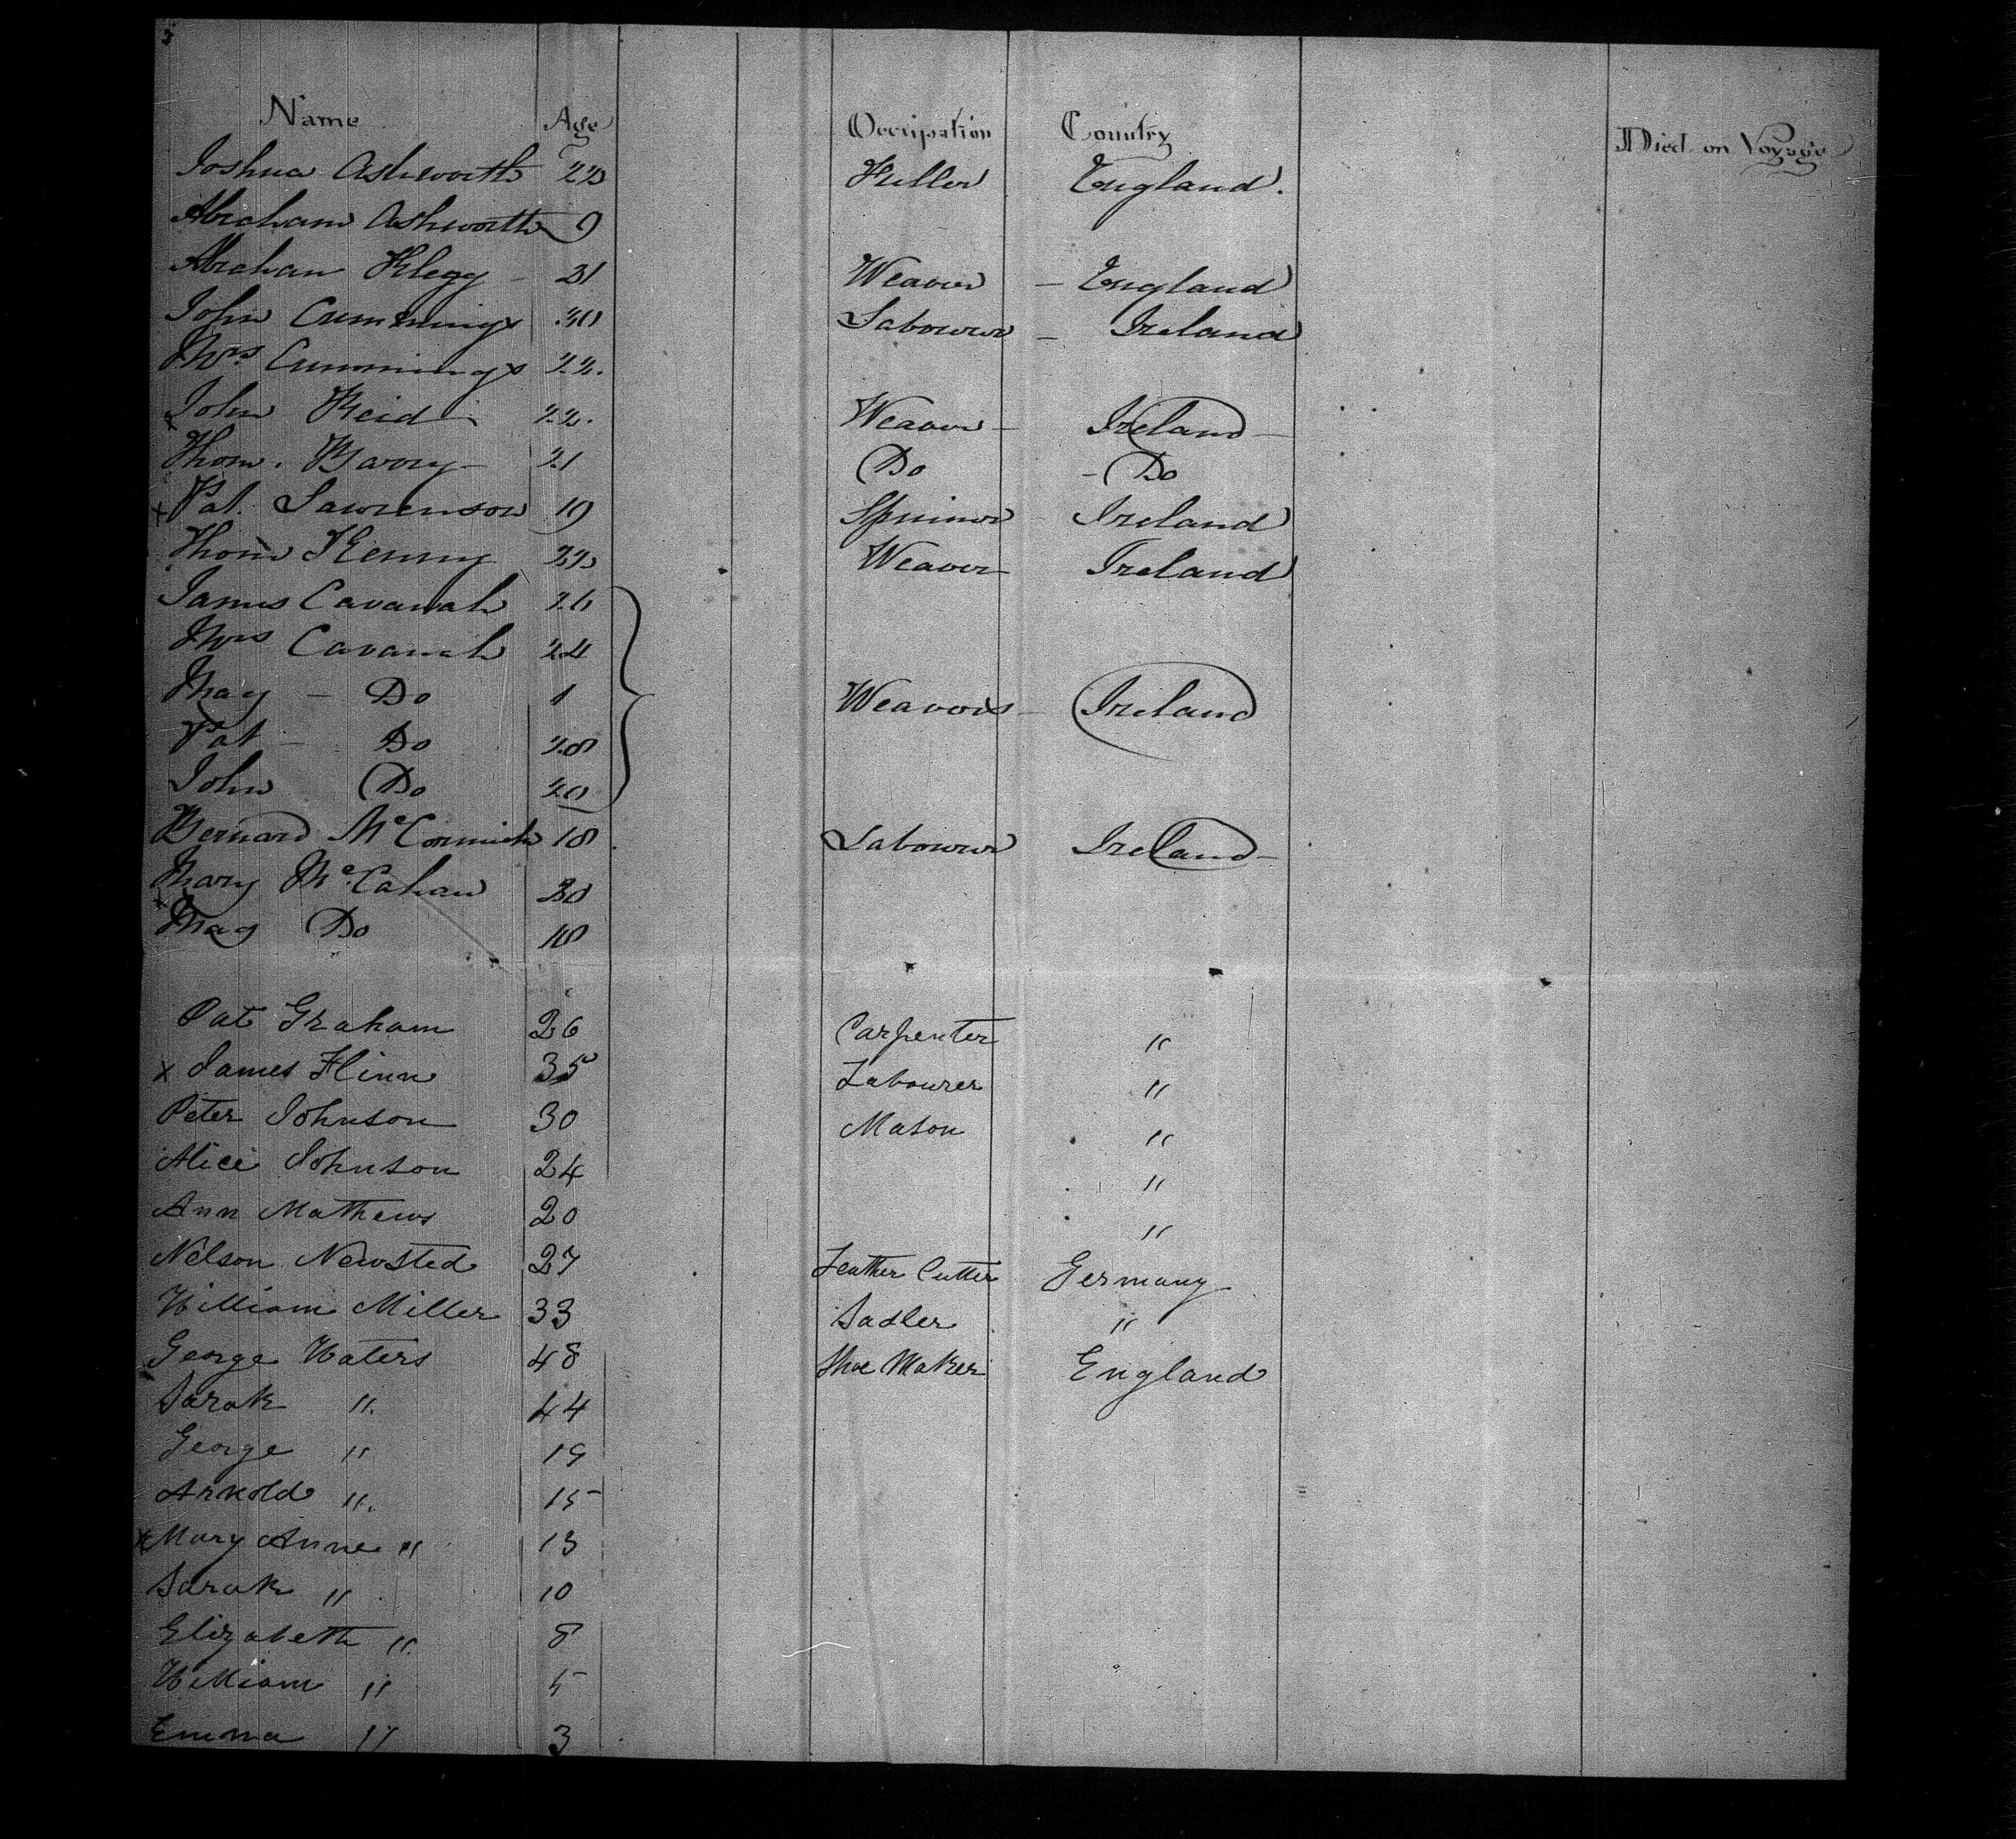 Name Age Occupation Country Died on Voyage
Joshua Ashworth 22 Fuller England.
Abraham Ashworth 9
Abraham Klegg - 21 Weaver - England
John Cummings 30 Labourer - Ireland
Mrs Cummings 22.
x John Reid - 22. Weaver - Ireland -
Thom. Barry - 21 Do - Do
x Pat. Lawrenson 19 Spinner Ireland
Thom Kenny 22 Weaver Ireland
James Cavanah 26
Mrs Cavanah 24
May - Do 1 Weavers - Ireland
Pat - Do 28
John Do 20
Bernard McCormick 18 Labourer Ireland -
Mary McCahan 30
x May Do 18
Pat Graham 26 Carpenter "
x James Flinn 35 Labourer "
Peter Johnson 30 Mason "
Alice Johnson 24 "
Ann Mathews 20 "
Nelson Newsted 27 Leather Cutter Germany
William Miller 33 Sadler "
George Waters 48 Shoe Maker England
Sarah ". 44
George " 19
Arnold ". 15
x Mary Anne " 13
Sarah " 10
Elizabeth ". 8
William " 5
Emma " 3